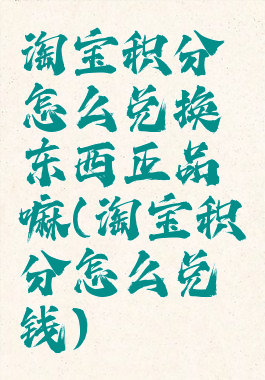 淘宝积分
怎么兑换
东西正品
嘛(淘宝积
分怎么兑
钱)